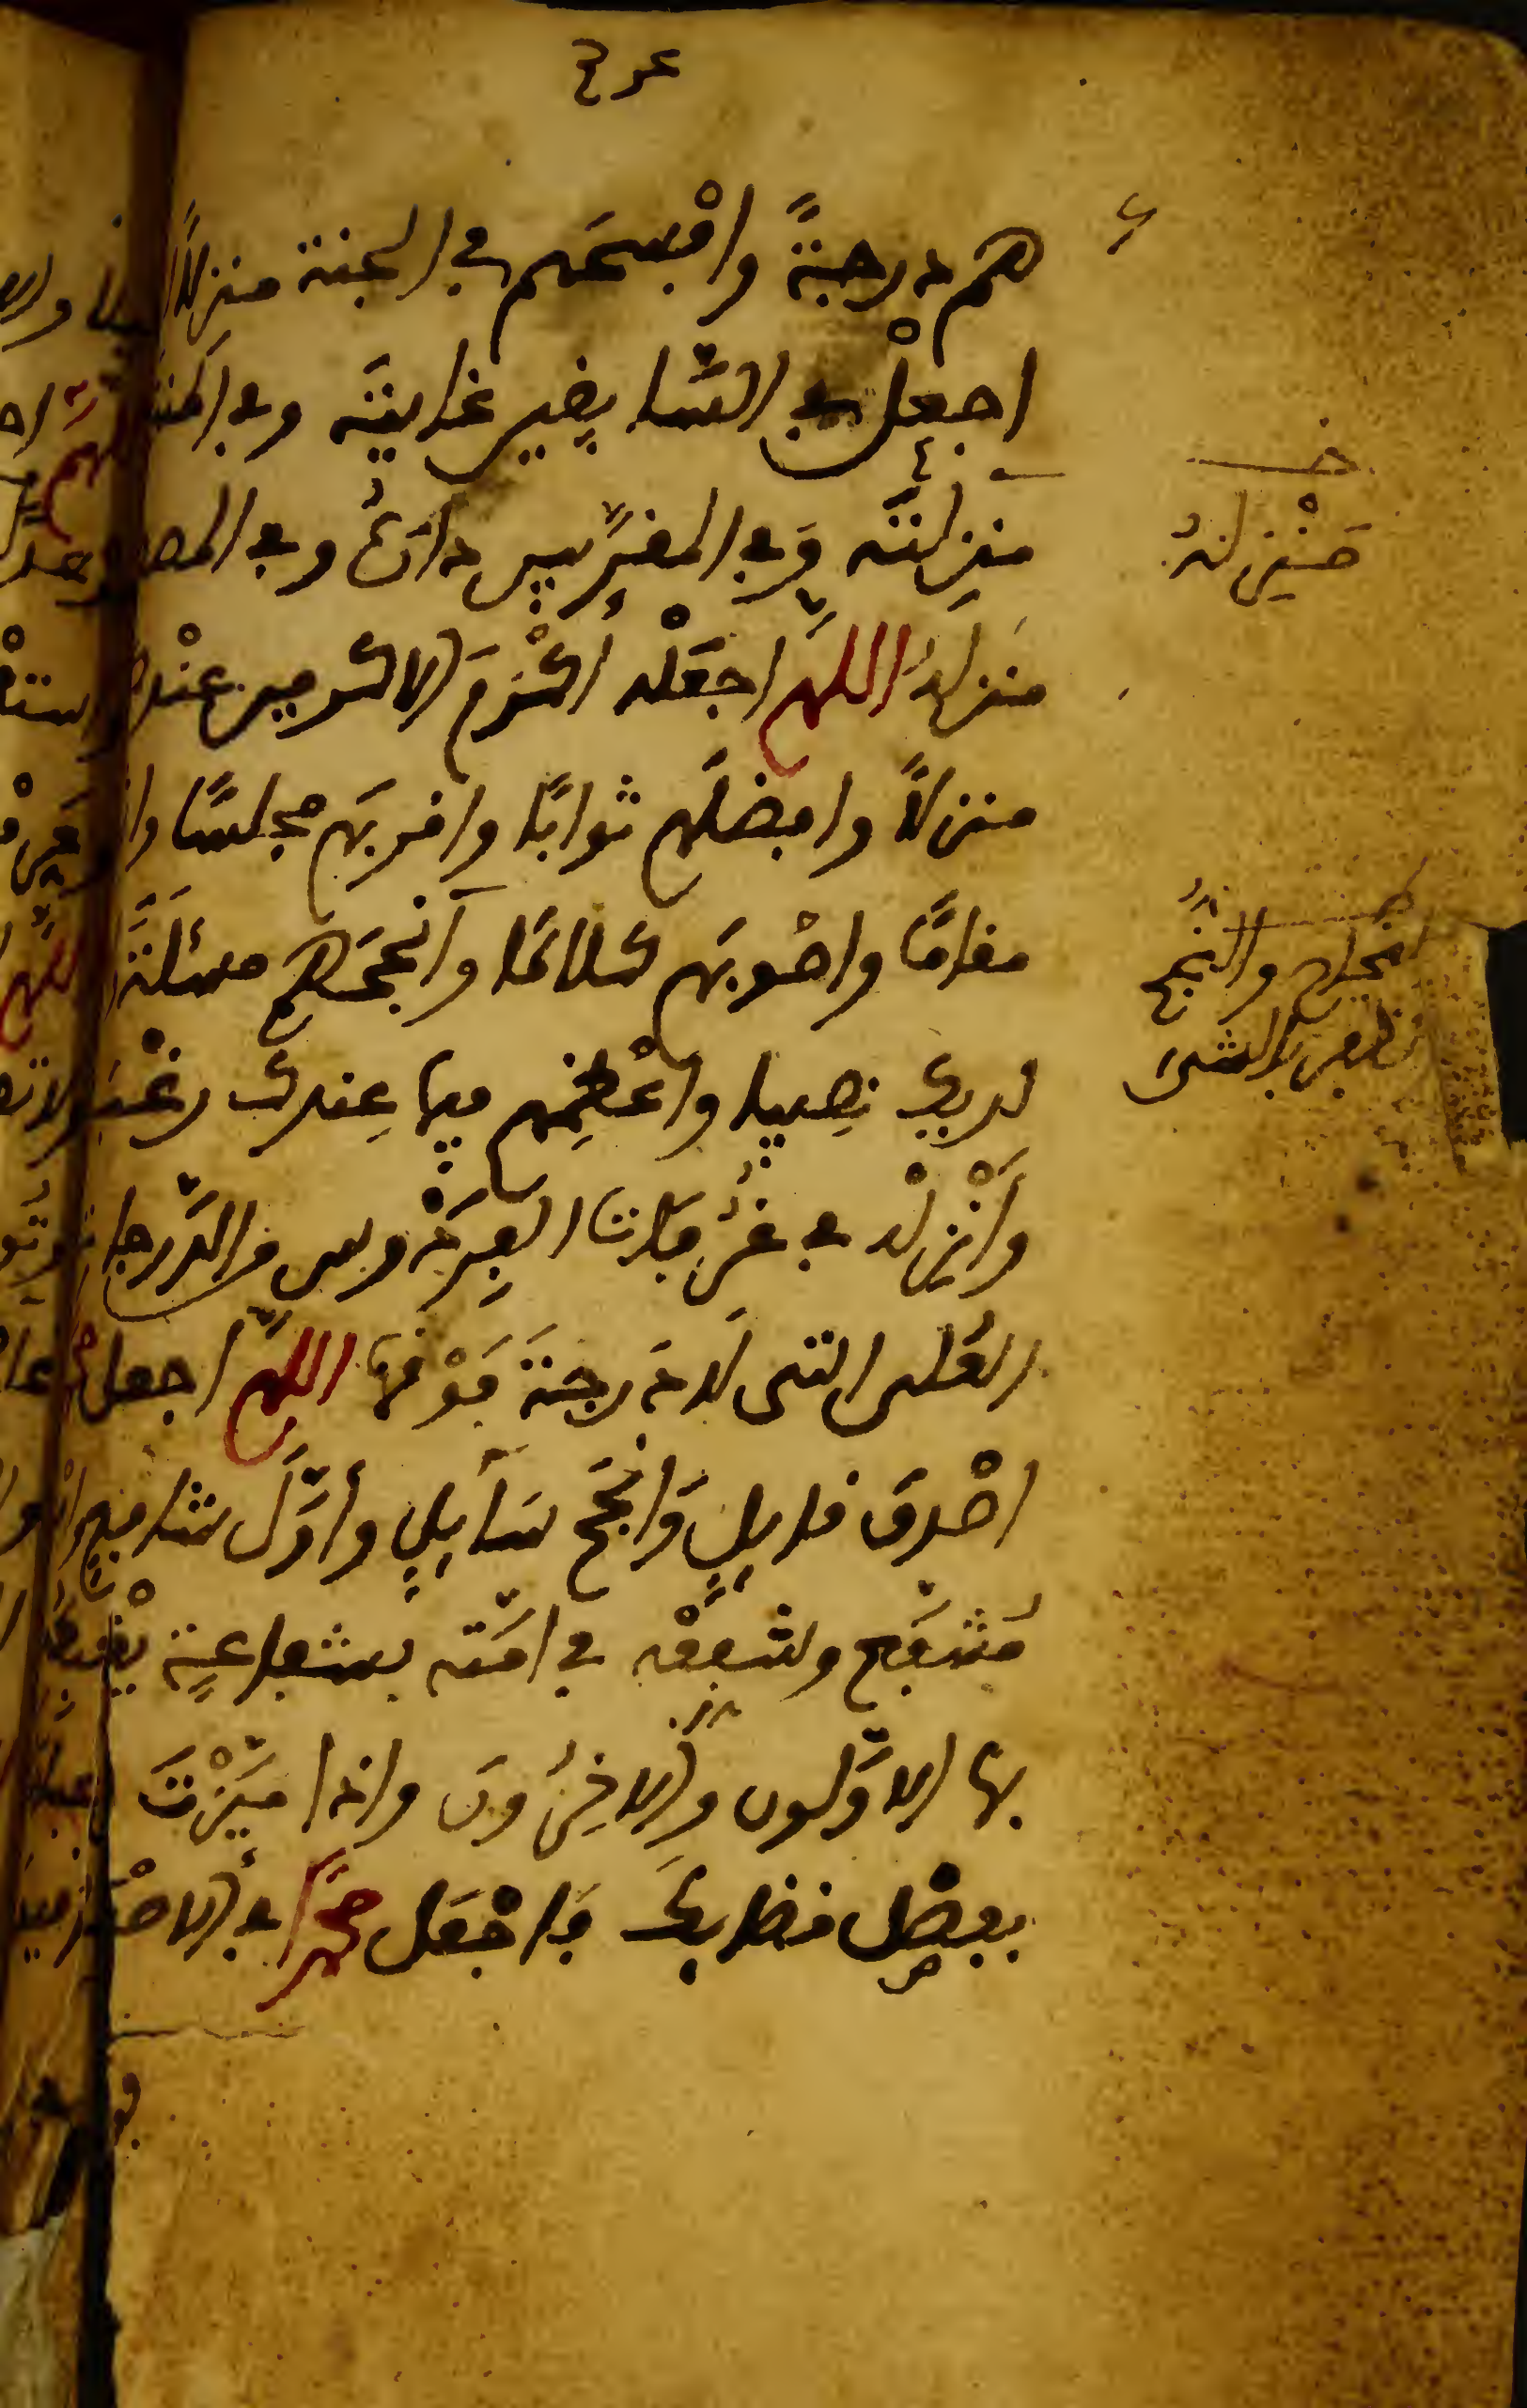 هم درجة وافسحهم في الجنة منزلا
اجعل في السابقين غايته وفي
منزلته وفي المقربين داره وفي
منزله اللهم اجعله أكرم الاكرمين عندك
منزلا وافضلهم ثوابا واقربهم مجلسا
مقاما واصوبهم كلاما وأنجحهم مسئلة
لديك نصيبا وأعظمهم فيما عندك رغبة
وأنزله في غرفات الفردوس من الدرجات
العلى التي لا درجة فوقها اللهم اجعل
اصدق قايل وانجح سآيل وأول شافع
مشفع وشفعه في امته بشفاعة يغبطه
بها الاولون والاخرون واذا ميزت
بفصل قضايك فاجعل محمدا في الاصدقين
منزلته
والنجح
الظفر بالشيء